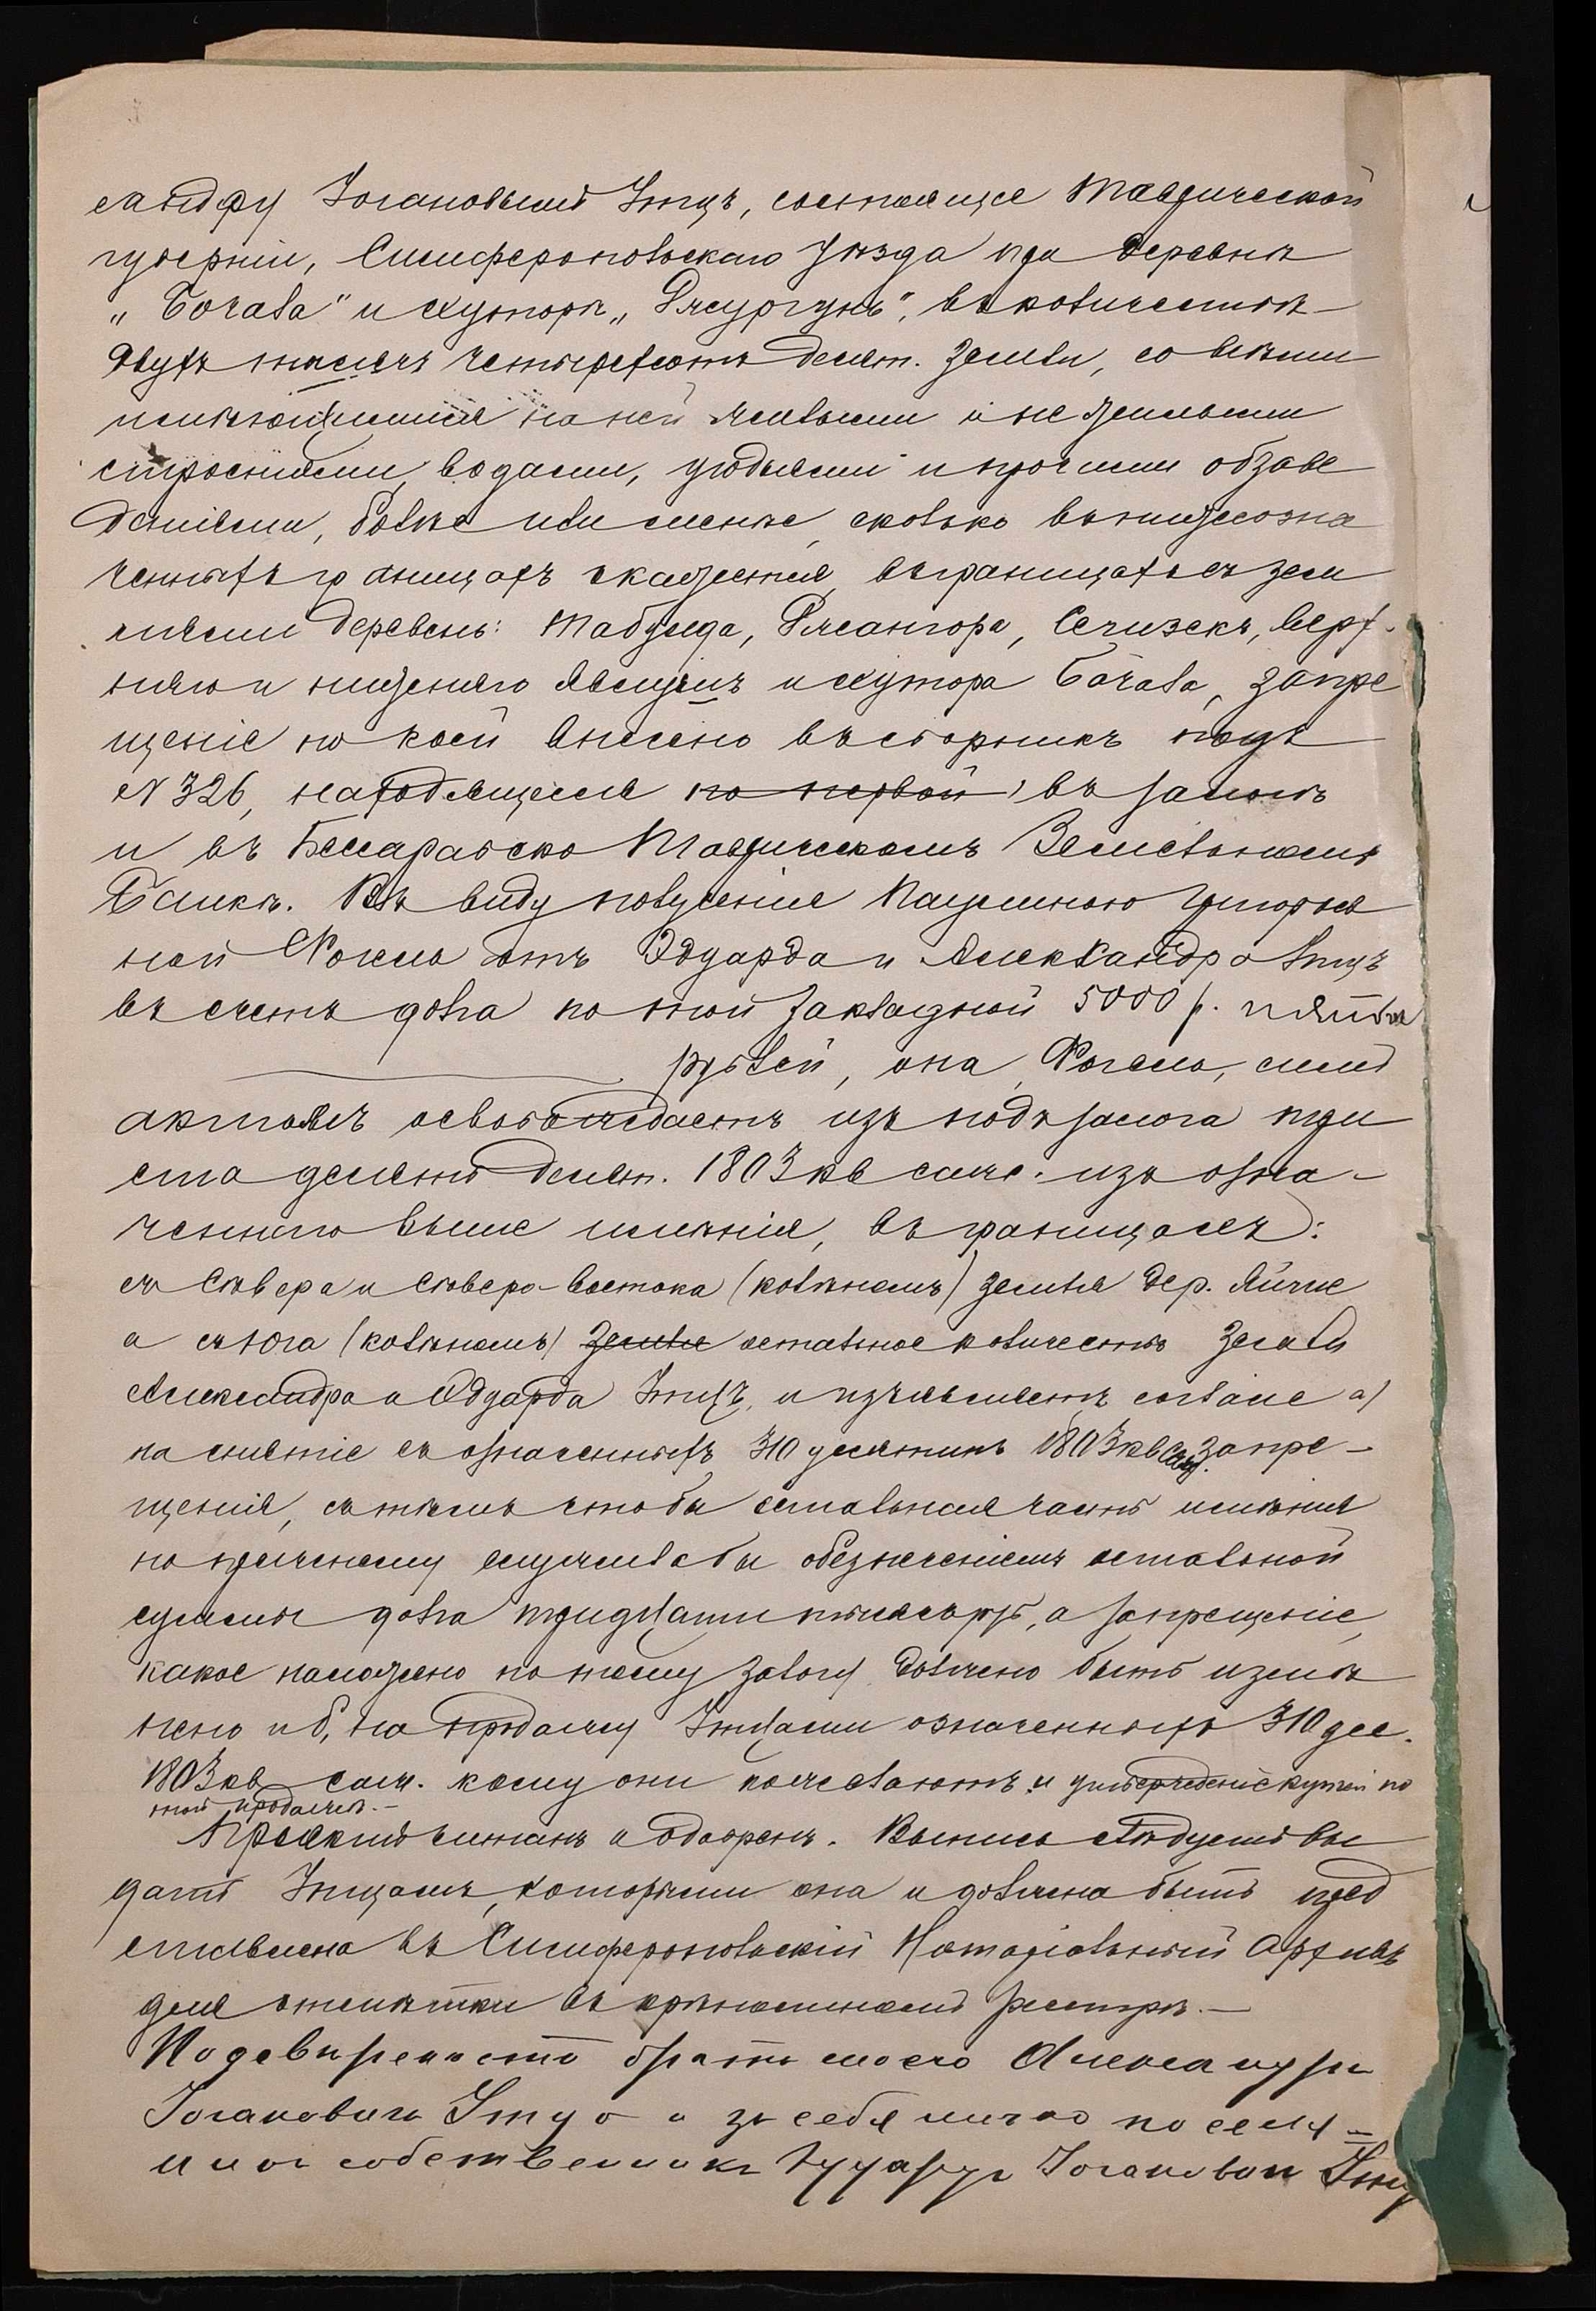 сандру Іогановымъ Зтцъ, состоящее Таврической
губерніи, Симферопольскаго уѣзда при деревнѣ
„Бочала" и хуторѣ „Джургунъ", въ количествѣ
двухъ тысячъ четырехсотъ десят. земли, со всѣми
имѣющимися на ней жилыми и нежилыми
строеніями, водами, угодьями и прочими обзаве
деніями, болѣе или менѣе, сколько въ нижеозна
ченныхъ границахъ окажется, въ границахъ съ зем
лями деревень: Табулда, Сечизекъ, Верх-
няго и нижняго и хутора Бочала, запре
щеніе на коей внесено въ сборникъ подъ
№ 326, находящееся по первой въ залогѣ
и въ Бессарабско Таврическомъ Земельномъ
Банкѣ. Въ виду полученія Григорьев
ной Фогель отъ Эдуарда и Александра Зтцъ
въ счетъ долга по этой закладной 5000 р. пять
рублей, она, Фогель, симъ
актомъ освобождаетъ изъ подъ залога три
ста десять десят. 1803 кв саж. изъ озна-
ченнаго выше имѣнія, въ границахъ:
съ Сѣвера и Сѣверо-Востока (колѣномъ) земля дер.
а съ юга (колѣномъ) земля остальное количество земли
Александра и Эдуарда Зтцъ, и изъявляетъ согласіе а)
на снятіе съ означенныхъ 310 десятинъ 1803 кв саж. запре-
щенія, съ тѣмъ чтобы остальная часть имѣнія
по прежнему служила бы обезпеченіемъ остальной
суммы долга тридцати тысячъ руб, а запрещеніе,
какое наложено по этому залогу должно быть измѣ
нено и б, на продажу Зтцами означенныхъ 310 дес.
1803 кв саж. кому они пожелаютъ и утвержденіе купчей по
этой продажѣ.-
Проектъ читанъ и одобренъ. Выпись слѣдуетъ вы
дать Зтцамъ, которыми она и должна быть пред
ставлена въ Симферопольскій Нотаріальный Архивъ
для отмѣтки въ крѣпостномъ реестрѣ.-
По довѣренности брата моего Александра
Іогановича Зтцъ и за себя лично поселя-
нинъ собственникъ Эдуардъ Іогановичъ Зтцъ